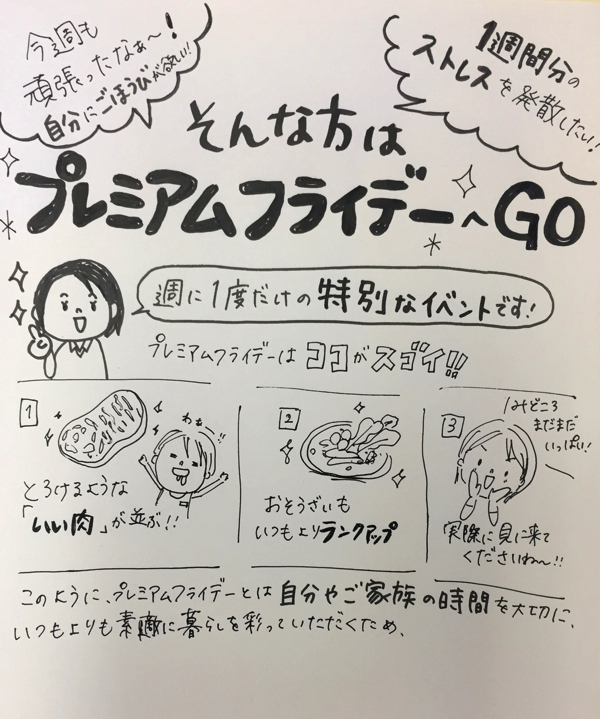 今週も
頑張ったなぁ〜!
自分にごほうびが欲しい!!
1週間分の
ストレスを発散したい!
そんな方は
プレミアムフライデーへGO
週に1度だけの特別なイベントです!
プレミアムフライデーはココがスゴイ!!
1
わぁー!!
とろけるような
「いい肉」が並ぶ!!
2
おそうざいも
いつもよりランクアップ
3
みどころ
まだまだ
いっぱい!
実際に見に来て
くださいね〜!!
このように、プレミアムフライデーとは自分やご家族の時間を大切に、
いつもよりも素敵に暮らしを彩っていただくため、